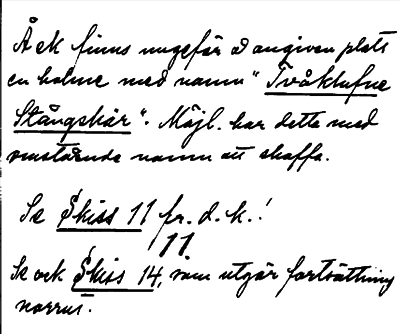 Å ek finns ungefär å angiven plats
en holme med namn "Tvåklufne
Stångskär". Möjl. har detta med
omstående namn att skaffa.
Se Skiss 11 för d. k.!
11.
Se ock Skiss 14, som utgör fortsättning
norrut.